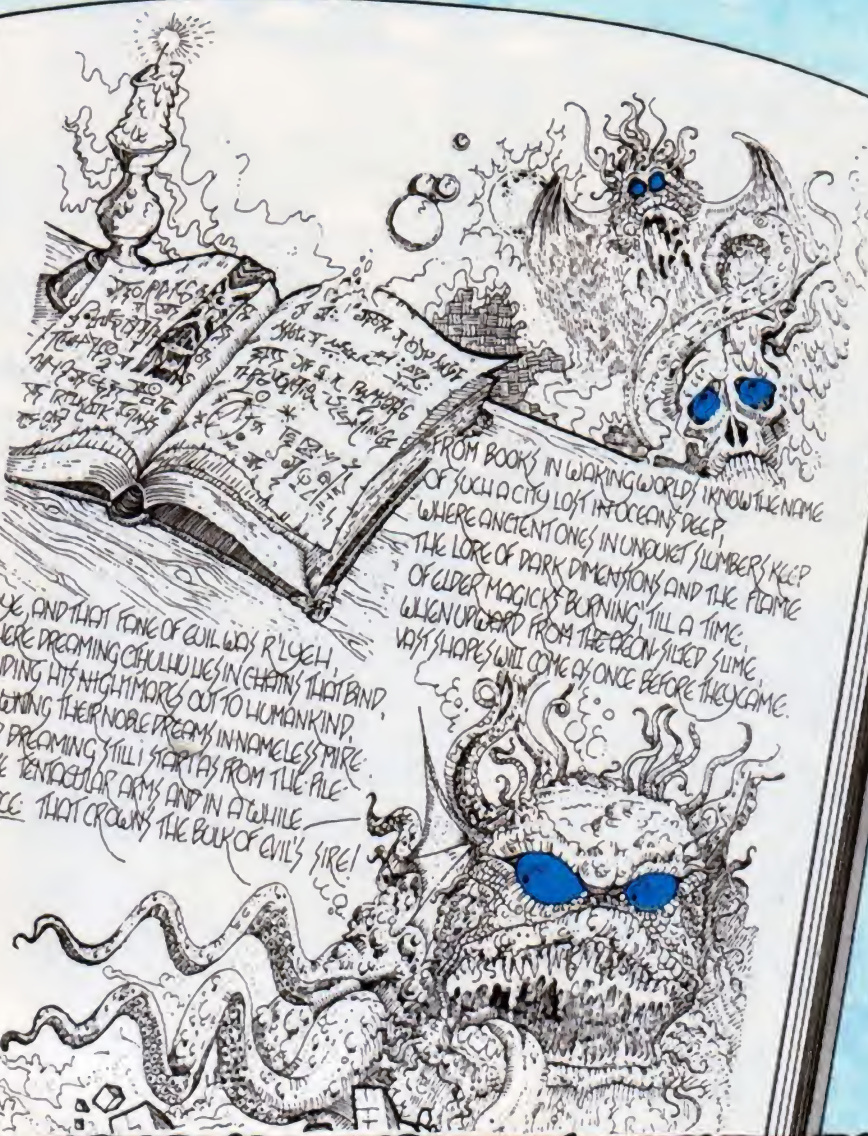 FROM BOOKS IN WAKING WORLDS I KNOW THE NAME
OF SUCH A CITY LOST IN OCEANS DEEP,
WHERE ANCIENT ONES IN UNQUIET SLUMBERS KEEP
THE LORE OF DARK DIMENSIONS AND THE FLAME
OF ELDER MAGICKS BURNING 'TILL A TIME,
WHEN UPWARD FROM THE AEON-SILTED SLIME
VAST SHAPES WILL COME AS ONCE BEFORE THEY CAME.
YE, AND THAT FANE OF EVIL WAS R'LYEH,
ERE DREAMING CTHULHU LIES IN CHAINS THAT BIND,
DING HIS NIGHTMARES OUT TO HUMANKIND,
WNING THEIR NOBLE DREAMS IN NAMELESS MIRE.
DREAMING STILL I START AS FROM THE PILE
TENTACULAR ARMS AND IN A WHILE
THAT CROWNS THE BULK OF EVIL'S SIRE!